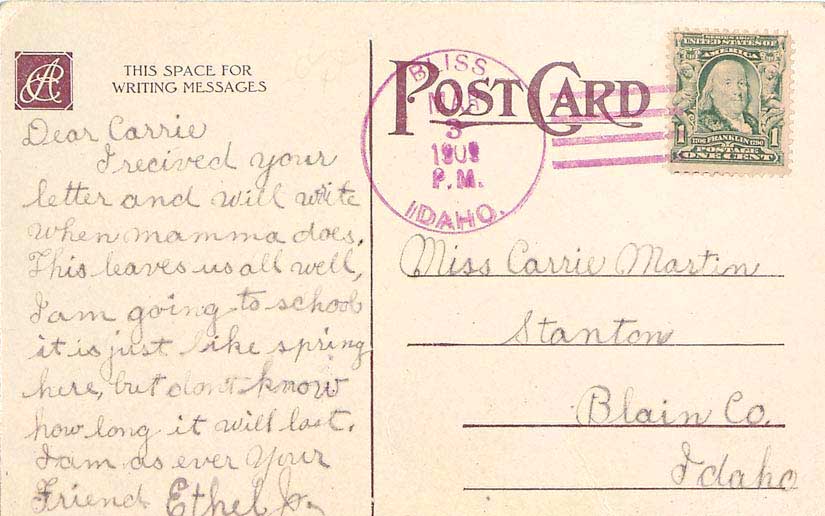 THIS SPACE FOR
WRITING MESSAGES
POST CARD
BLISS
MAR
3
190
P.M.
IDAHO.
SERIES 1902
UNITED STATES OF
AMERICA
1706 FRANKLIN 1790
POSTAGE
1 ONE CENT 1
Dear Carrie
I recived your
letter and will write
when mamma does.
This leaves us all well,
I am going to school
it is just like spring
here, but dont know
how long it will last.
I am as ever Your
Friend Ethel
Miss Carrie Martin
Stanton
Blain Co.
Idaho